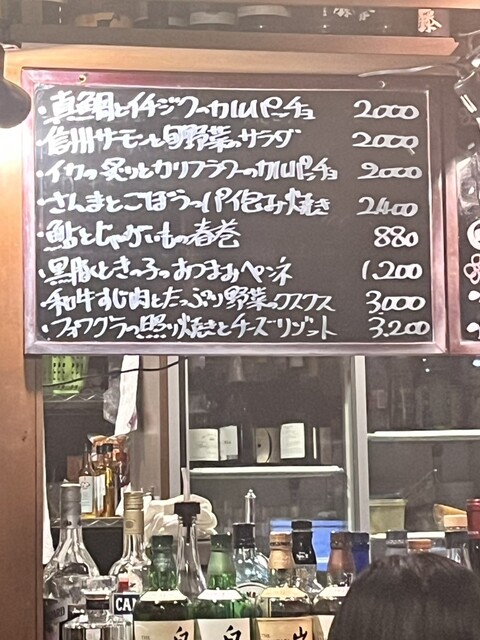 ・真鯛とイチジクのカルパッチョ 2.000
・信州サーモンと旬野菜のサラダ 2.000
・イカの炙りとカリフラワーのカルパッチョ 2.000
・さんまとごぼうのパイ包み焼き 2.400
・鮎とじゃがいもの春巻 880
・黒豚ときのこのおつまみペンネ 1.200
・和牛すじ肉とたっぷり野菜のクスクス 3.000
・フォワグラの照り焼きとチーズリゾット 3.200
CAM